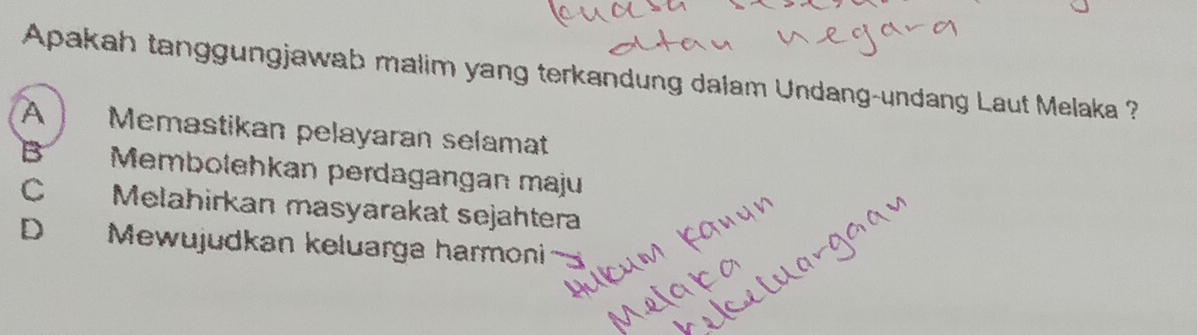 kuasa
atau negara
Apakah tanggungjawab malim yang terkandung dalam Undang-undang Laut Melaka ?
A Memastikan pelayaran selamat
B Membolehkan perdagangan maju
C Melahirkan masyarakat sejahtera
D Mewujudkan keluarga harmoni
Hukum Kanun
Melaka
kekeluargaan